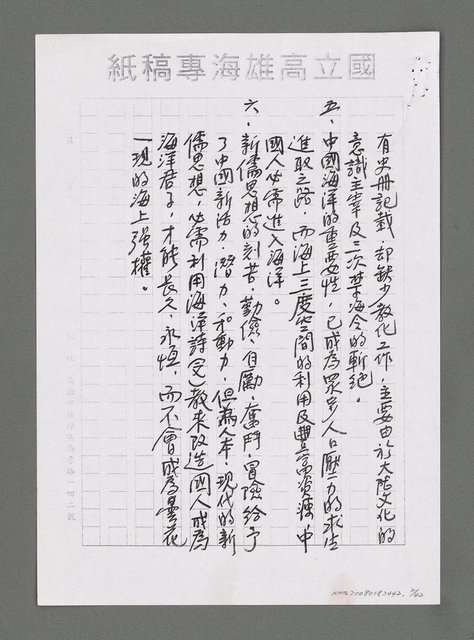 國立高雄海專稿紙
有史册記載，却缺少教化工作，主要由於大陸文化的
意識主宰及三次禁海令的斬絶。
五、中國海洋的重要性，已成為眾多人口壓力的求生
進取之路，而海上三度空間的利用及豐富資源，中
國人必需進入海洋。
六、新儒思想的刻苦、勤儉、自勵、奮鬥、冒險給予
了中國新活力、潛力、和動力，但為人本、現代的新
儒思想，必需利用海洋詩(文)教來改造國人成為
海洋君子，才能長久、永恒，而不會成為曇花
一現的海上强權。
一四二號
NMTL20080182442,